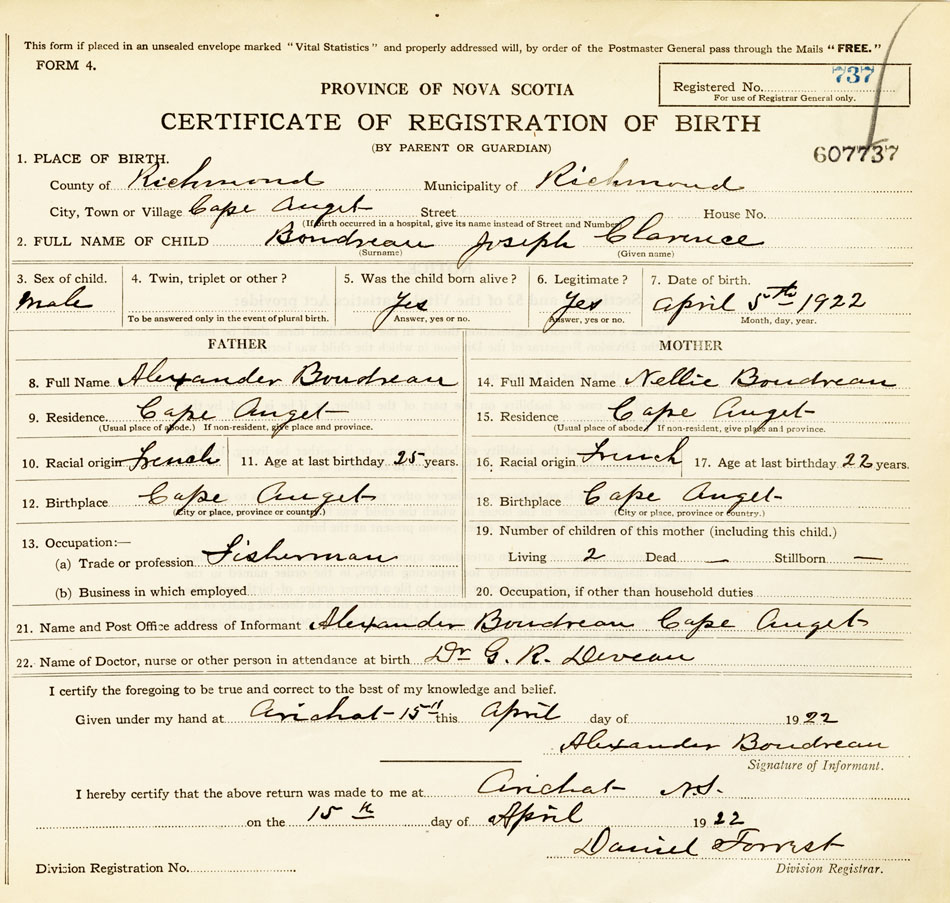 This form if placed in an unsealed envelope marked "Vital Statistics" and properly addressed will, by order of the Postmaster General pass through the Mails "FREE."
FORM 4.
Registered No. 737
For use of Registrar General only.
PROVINCE OF NOVA SCOTIA
CERTIFICATE OF REGISTRATION OF BIRTH
(BY PARENT OR GUARDIAN)
607737
1. PLACE OF BIRTH.
County of Richmond Municipality of Richmond
City, Town or Village Cape Auget Street House No.
(If birth occurred in a hospital, give its name instead of Street and Number)
2. FULL NAME OF CHILD Boudreau Joseph Clarence
(Surname) (Given name)
3. Sex of child. 4. Twin, triplet or other? 5. Was the child born alive? 6. Legitimate? 7. Date of birth.
Male Yes Yes April 5th 1922
To be answered only in the event of plural birth. Answer, yes or no. Answer, yes or no. Month, day, year.
FATHER MOTHER
8. Full Name Alexander Boudreau 14. Full Maiden Name Nellie Boudreau
9. Residence Cape Auget 15. Residence Cape Auget
(Usual place of abode.) If non-resident, give place and province. (Usual place of abode.) If non-resident, give place and province.
10. Racial origin French 11. Age at last birthday 25 years. 16. Racial origin French 17. Age at last birthday 22 years.
12. Birthplace Cape Auget 18. Birthplace Cape Auget
(City or place, province or country.) (City or place, province or country.)
13. Occupation:— 19. Number of children of this mother (including this child.)
(a) Trade or profession Fisherman Living 2 Dead — Stillborn —
(b) Business in which employed 20. Occupation, if other than household duties
21. Name and Post Office address of Informant Alexander Boudreau Cape Auget
22. Name of Doctor, nurse or other person in attendance at birth Dr G. R. Deveau
I certify the foregoing to be true and correct to the best of my knowledge and belief.
Given under my hand at Arichat 15th this April day of 1922
Alexander Boudreau
Signature of Informant.
I hereby certify that the above return was made to me at Arichat N.S.
on the 15th day of April 1922
Daniel Forrest
Division Registration No. Division Registrar.